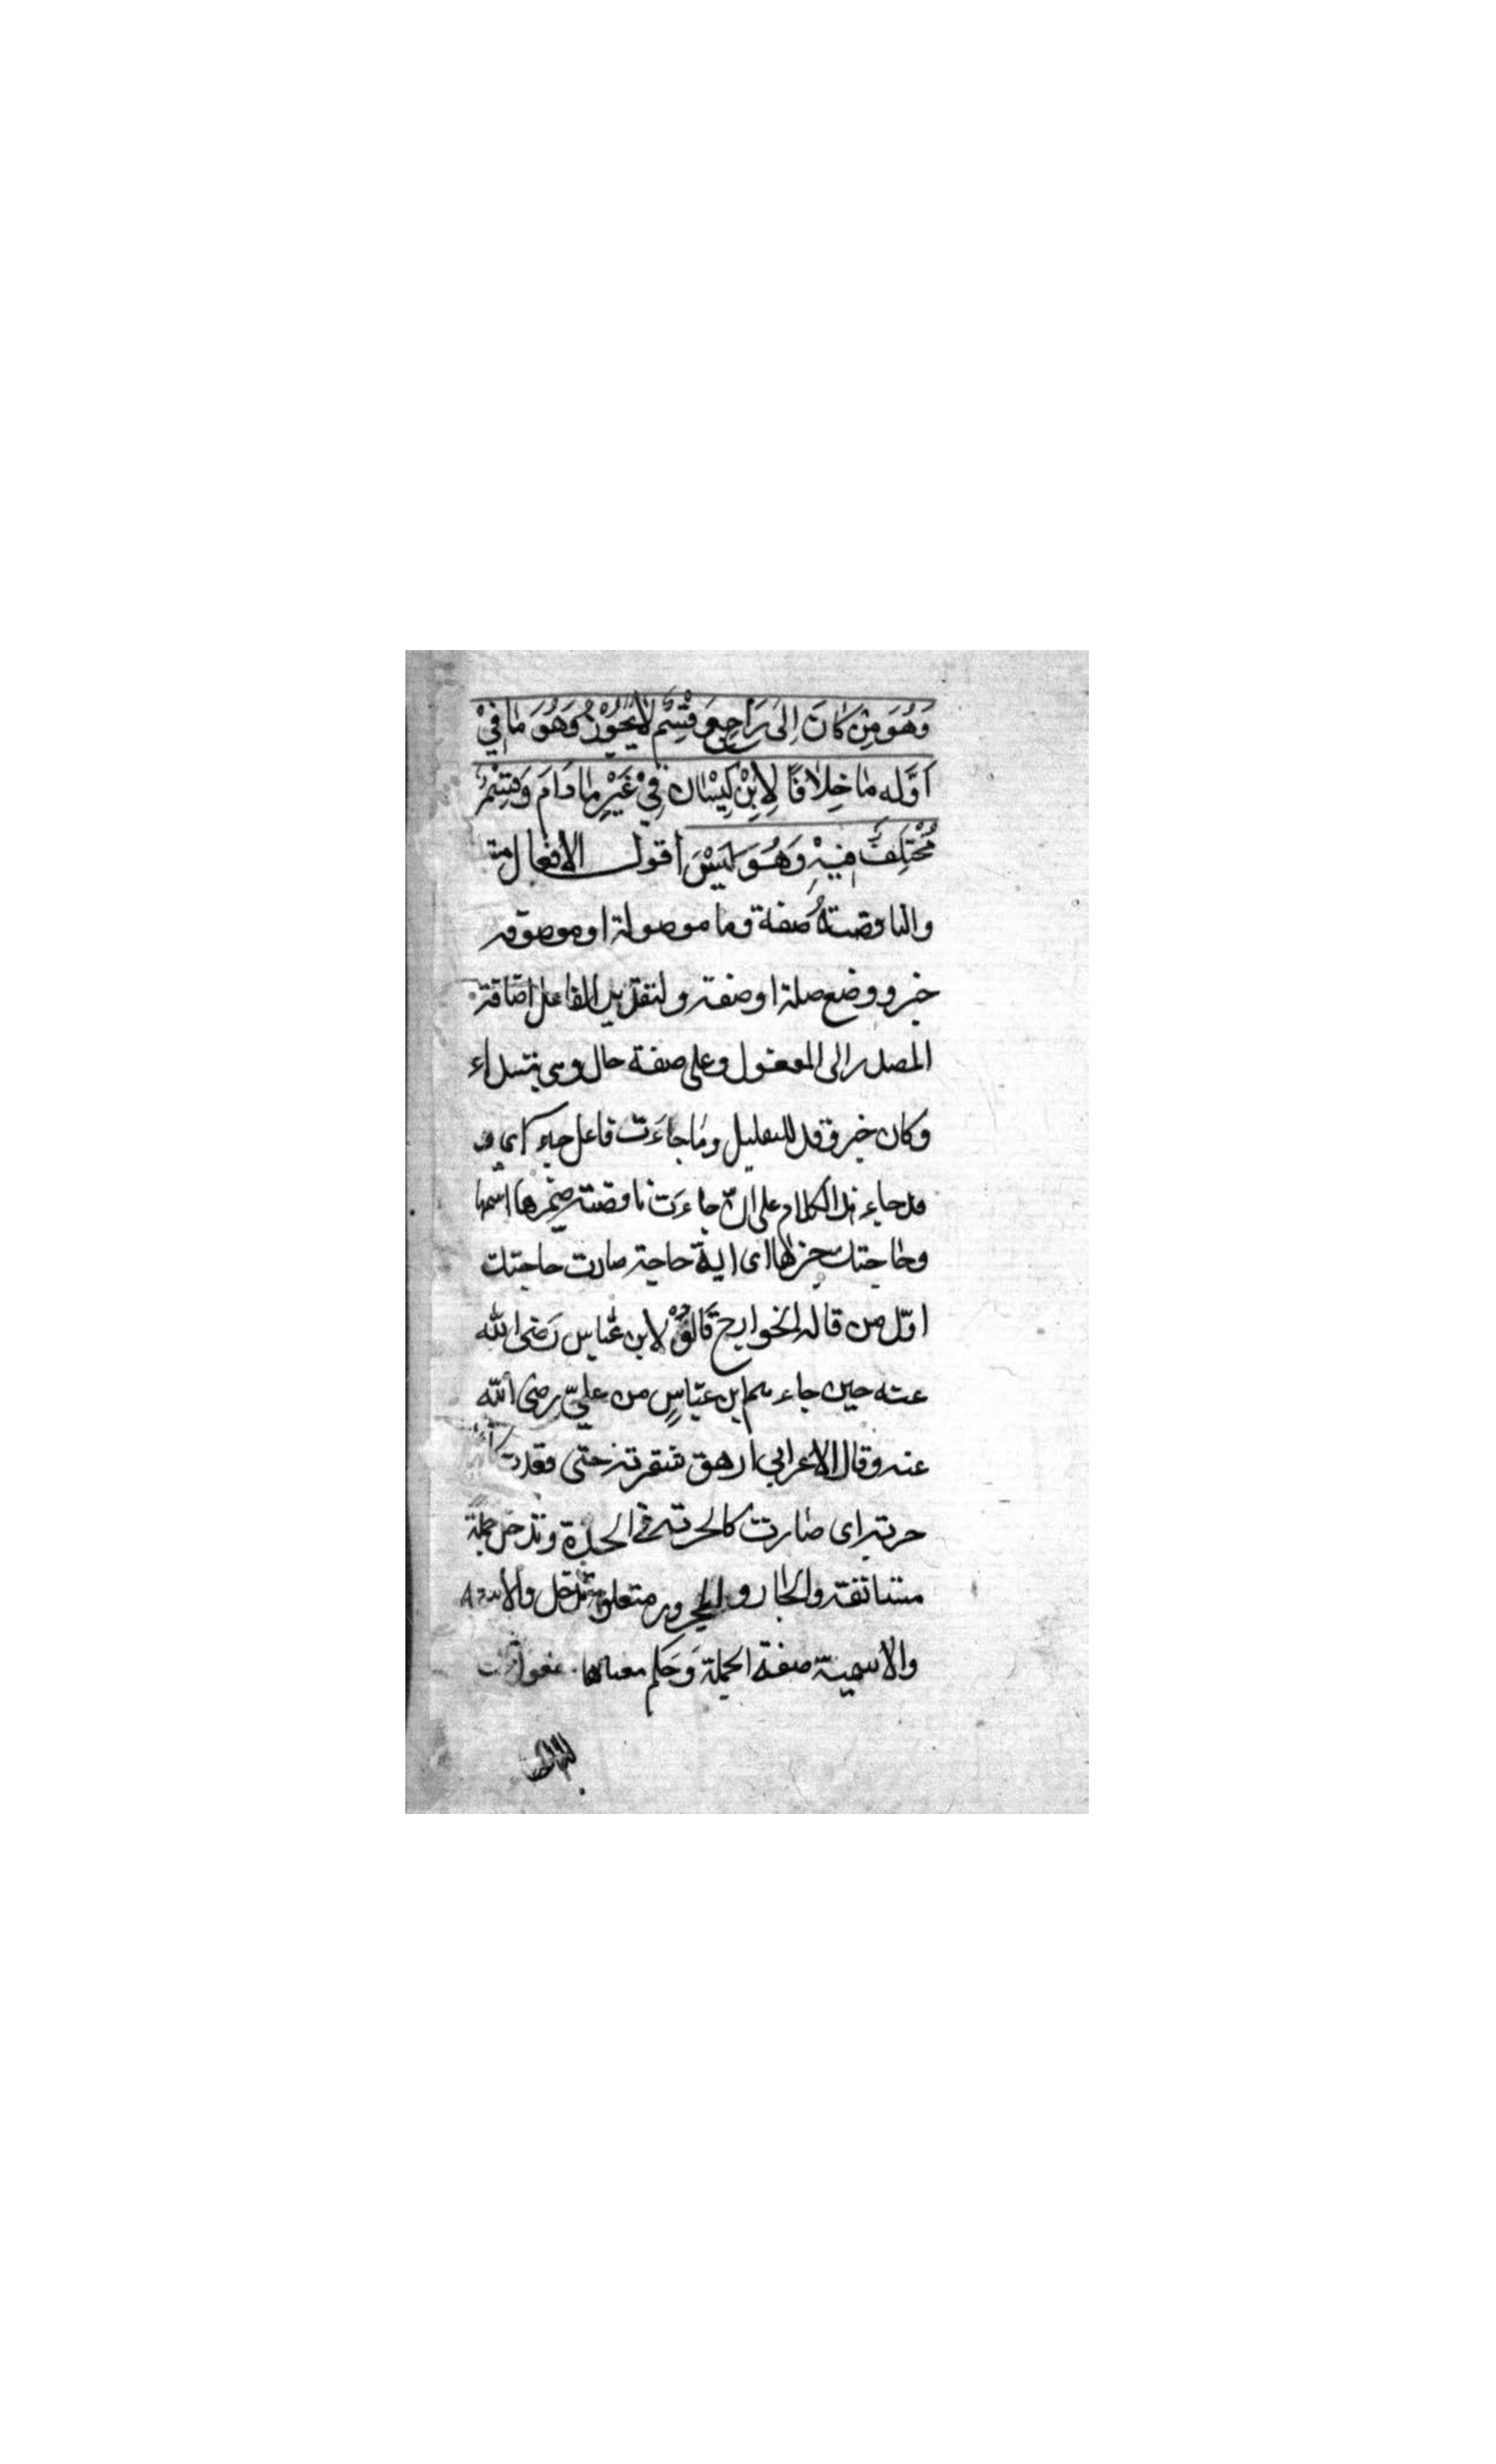 وَهُوَ مِنْ كَانَ اِلَى رَاحَ وَقِسْمٌ لَا يَجُوْزُ وَهُوَ مَا فِيْ
اَوَّلِه مَا خِلَافًا لِابْنِ كَيْسَانَ فِيْ غَيْرِ مَا دَامَ وَقِسْمٌ
مُخْتَلِفٌ فِيْهِ وَهُوَ لَيْسَ اقول الافعال مبتدأ
والناقصة صفة وما موصولة او موصوفة
خبر ووضع صلة او صفة ولتقرير الفاعل اضافة
المصدر الى المفعول وعلى صفة حال وهى مبتداء
وكان خبر وقد للتعليل وما جاءَت فاعل جاء اى
قد جاء هذا الكلام على انّ جاءَت ناقصة ضميرها اسمها
وحاجتك خبرها اى اية حاجة صارت حاجتك
اوّل من قاله الخوارج قَالُوْا لابن عبّاس رَضى الله
عنه حين جاءهم ابن عبّاسٍ من عليّ رضى الله
عنه وقال الاعرابي ارهق شفرته حتى قعدت كأنها
حربة اى صارت كالحربة فى الحدة وتدخل جملة
مستانفة والجار والمجرور متعلق بتدخل
والاسمية صفة الجملة وَحكم معناها